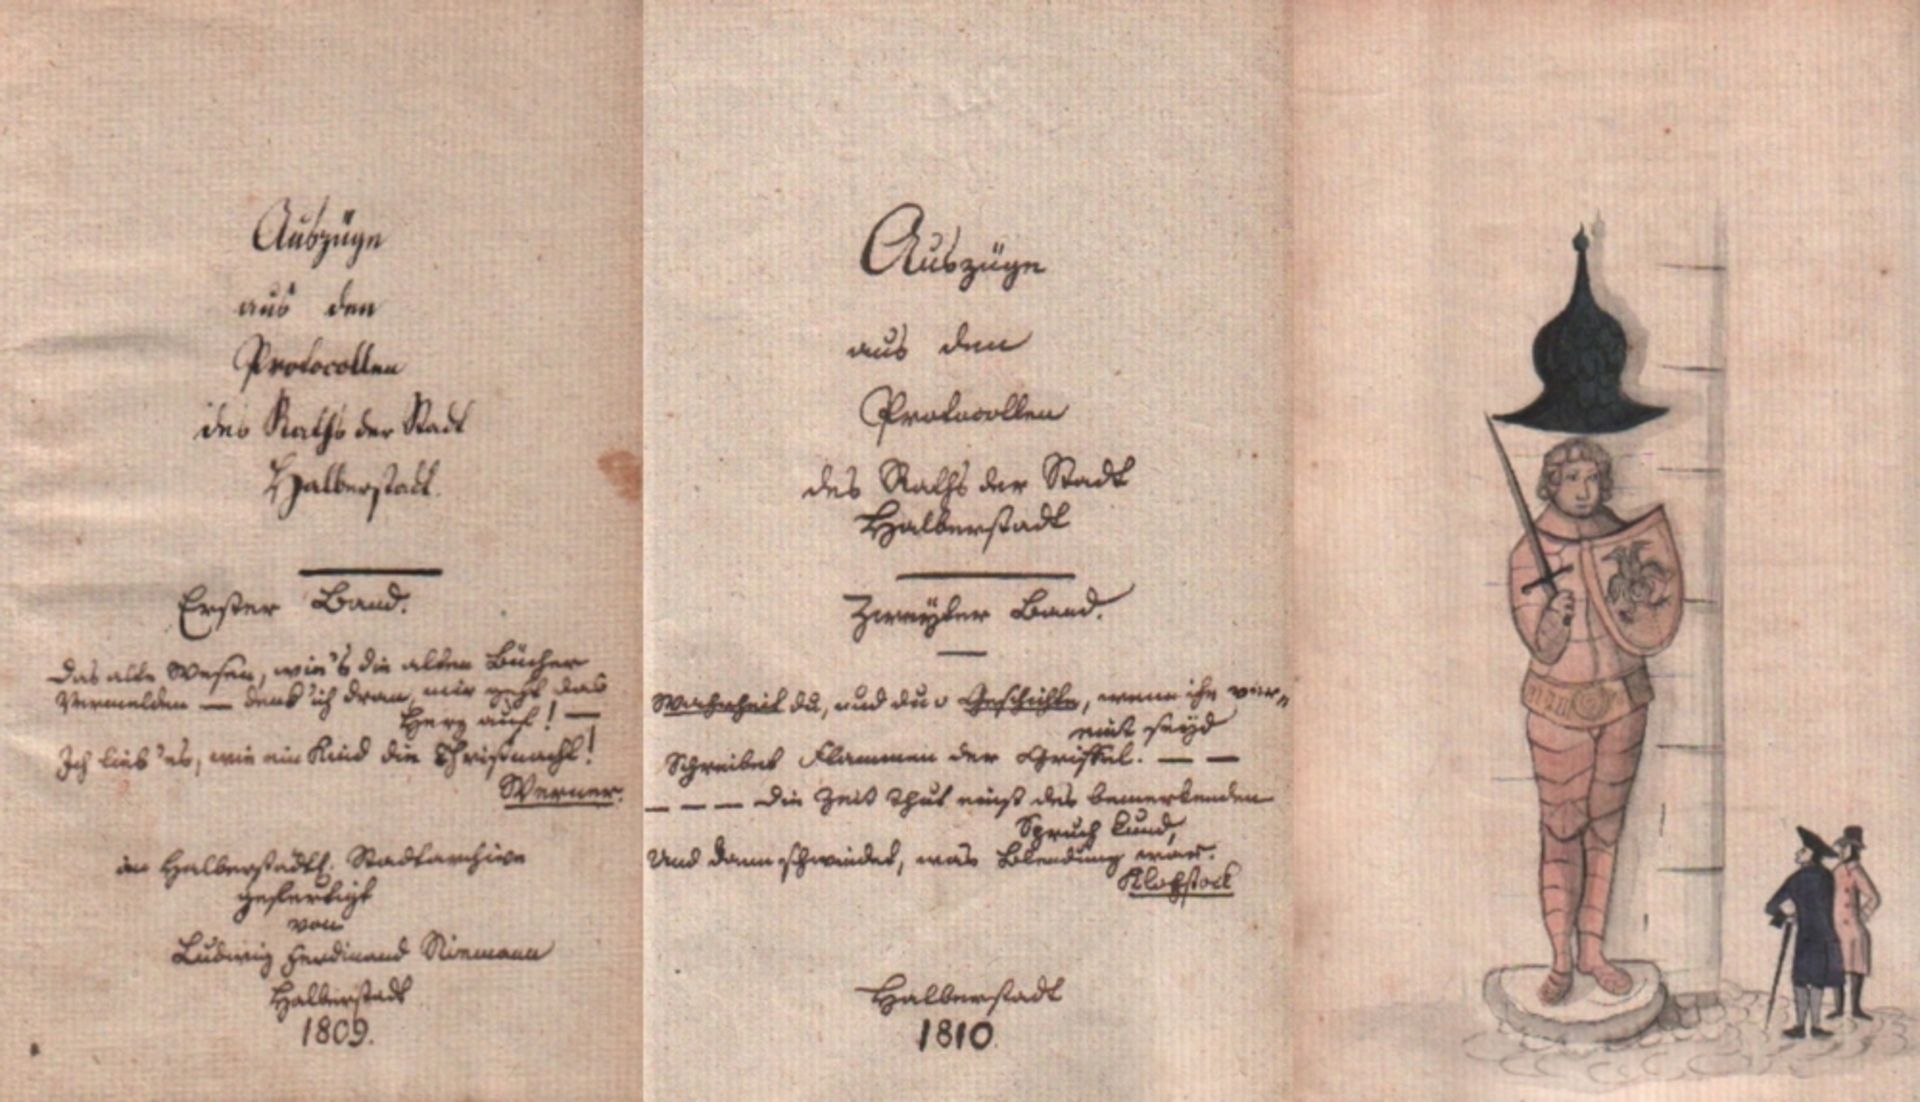 Auszüge
aus den
Protocollen
des Raths der Stadt
Halberstadt.
Erster Band.
Das alte Wesen, wie's die alten Bücher
Vermelden — denk' ich dran, mir geht das
Herz auf! —
Ich lieb' es, wie ein Kind die Christnacht!
Werner.
im Halberstädt. Stadtarchive
gefertigt
von
Ludwig Ferdinand Niemann
Halberstadt
1809.
Auszüge
aus den
Protocollen
des Raths der Stadt
Halberstadt
Zweyter Band.
Wahrheit du, und du o Geschichte, wenn ihr ver-
eint seyd
Schreibet Flammen der Griffel. — —
— — — Die Zeit thut einst des bemerkenden
Spruch kund,
Und dann schwindet, was Blendung war.
Klopstock
Halberstadt
1810